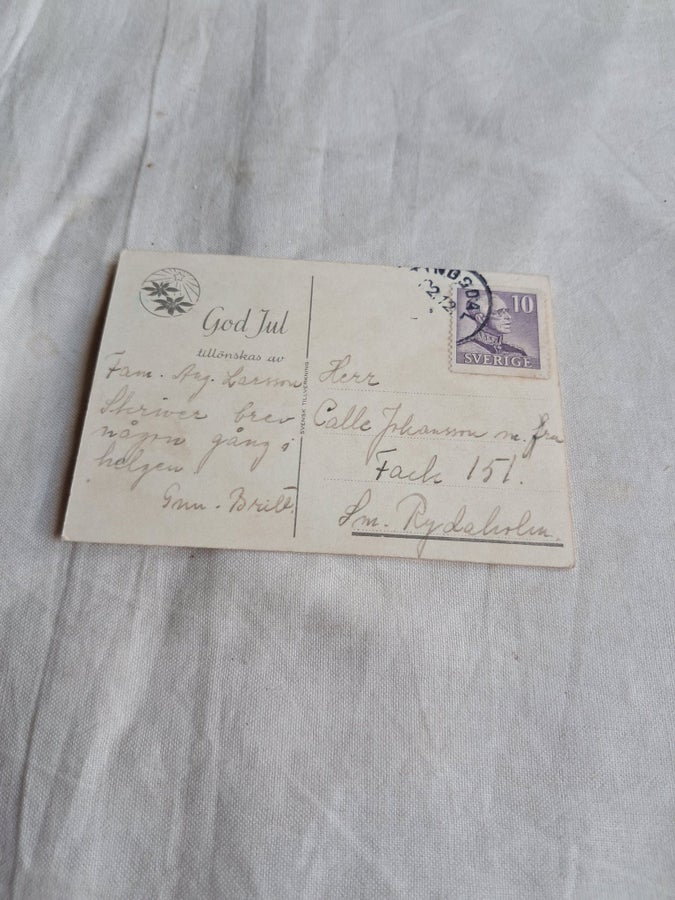 God Jul
tillönskas av
Fam. Arg. Larsson
Skriver brev
någon gång i
helgen.
Gun-Britt.
SVENSK TILLVERKNING
INGSDAL
2.12
10
SVERIGE
Herr
Calle Johansson m. fru
Fack 151.
Sm. Rydaholm.